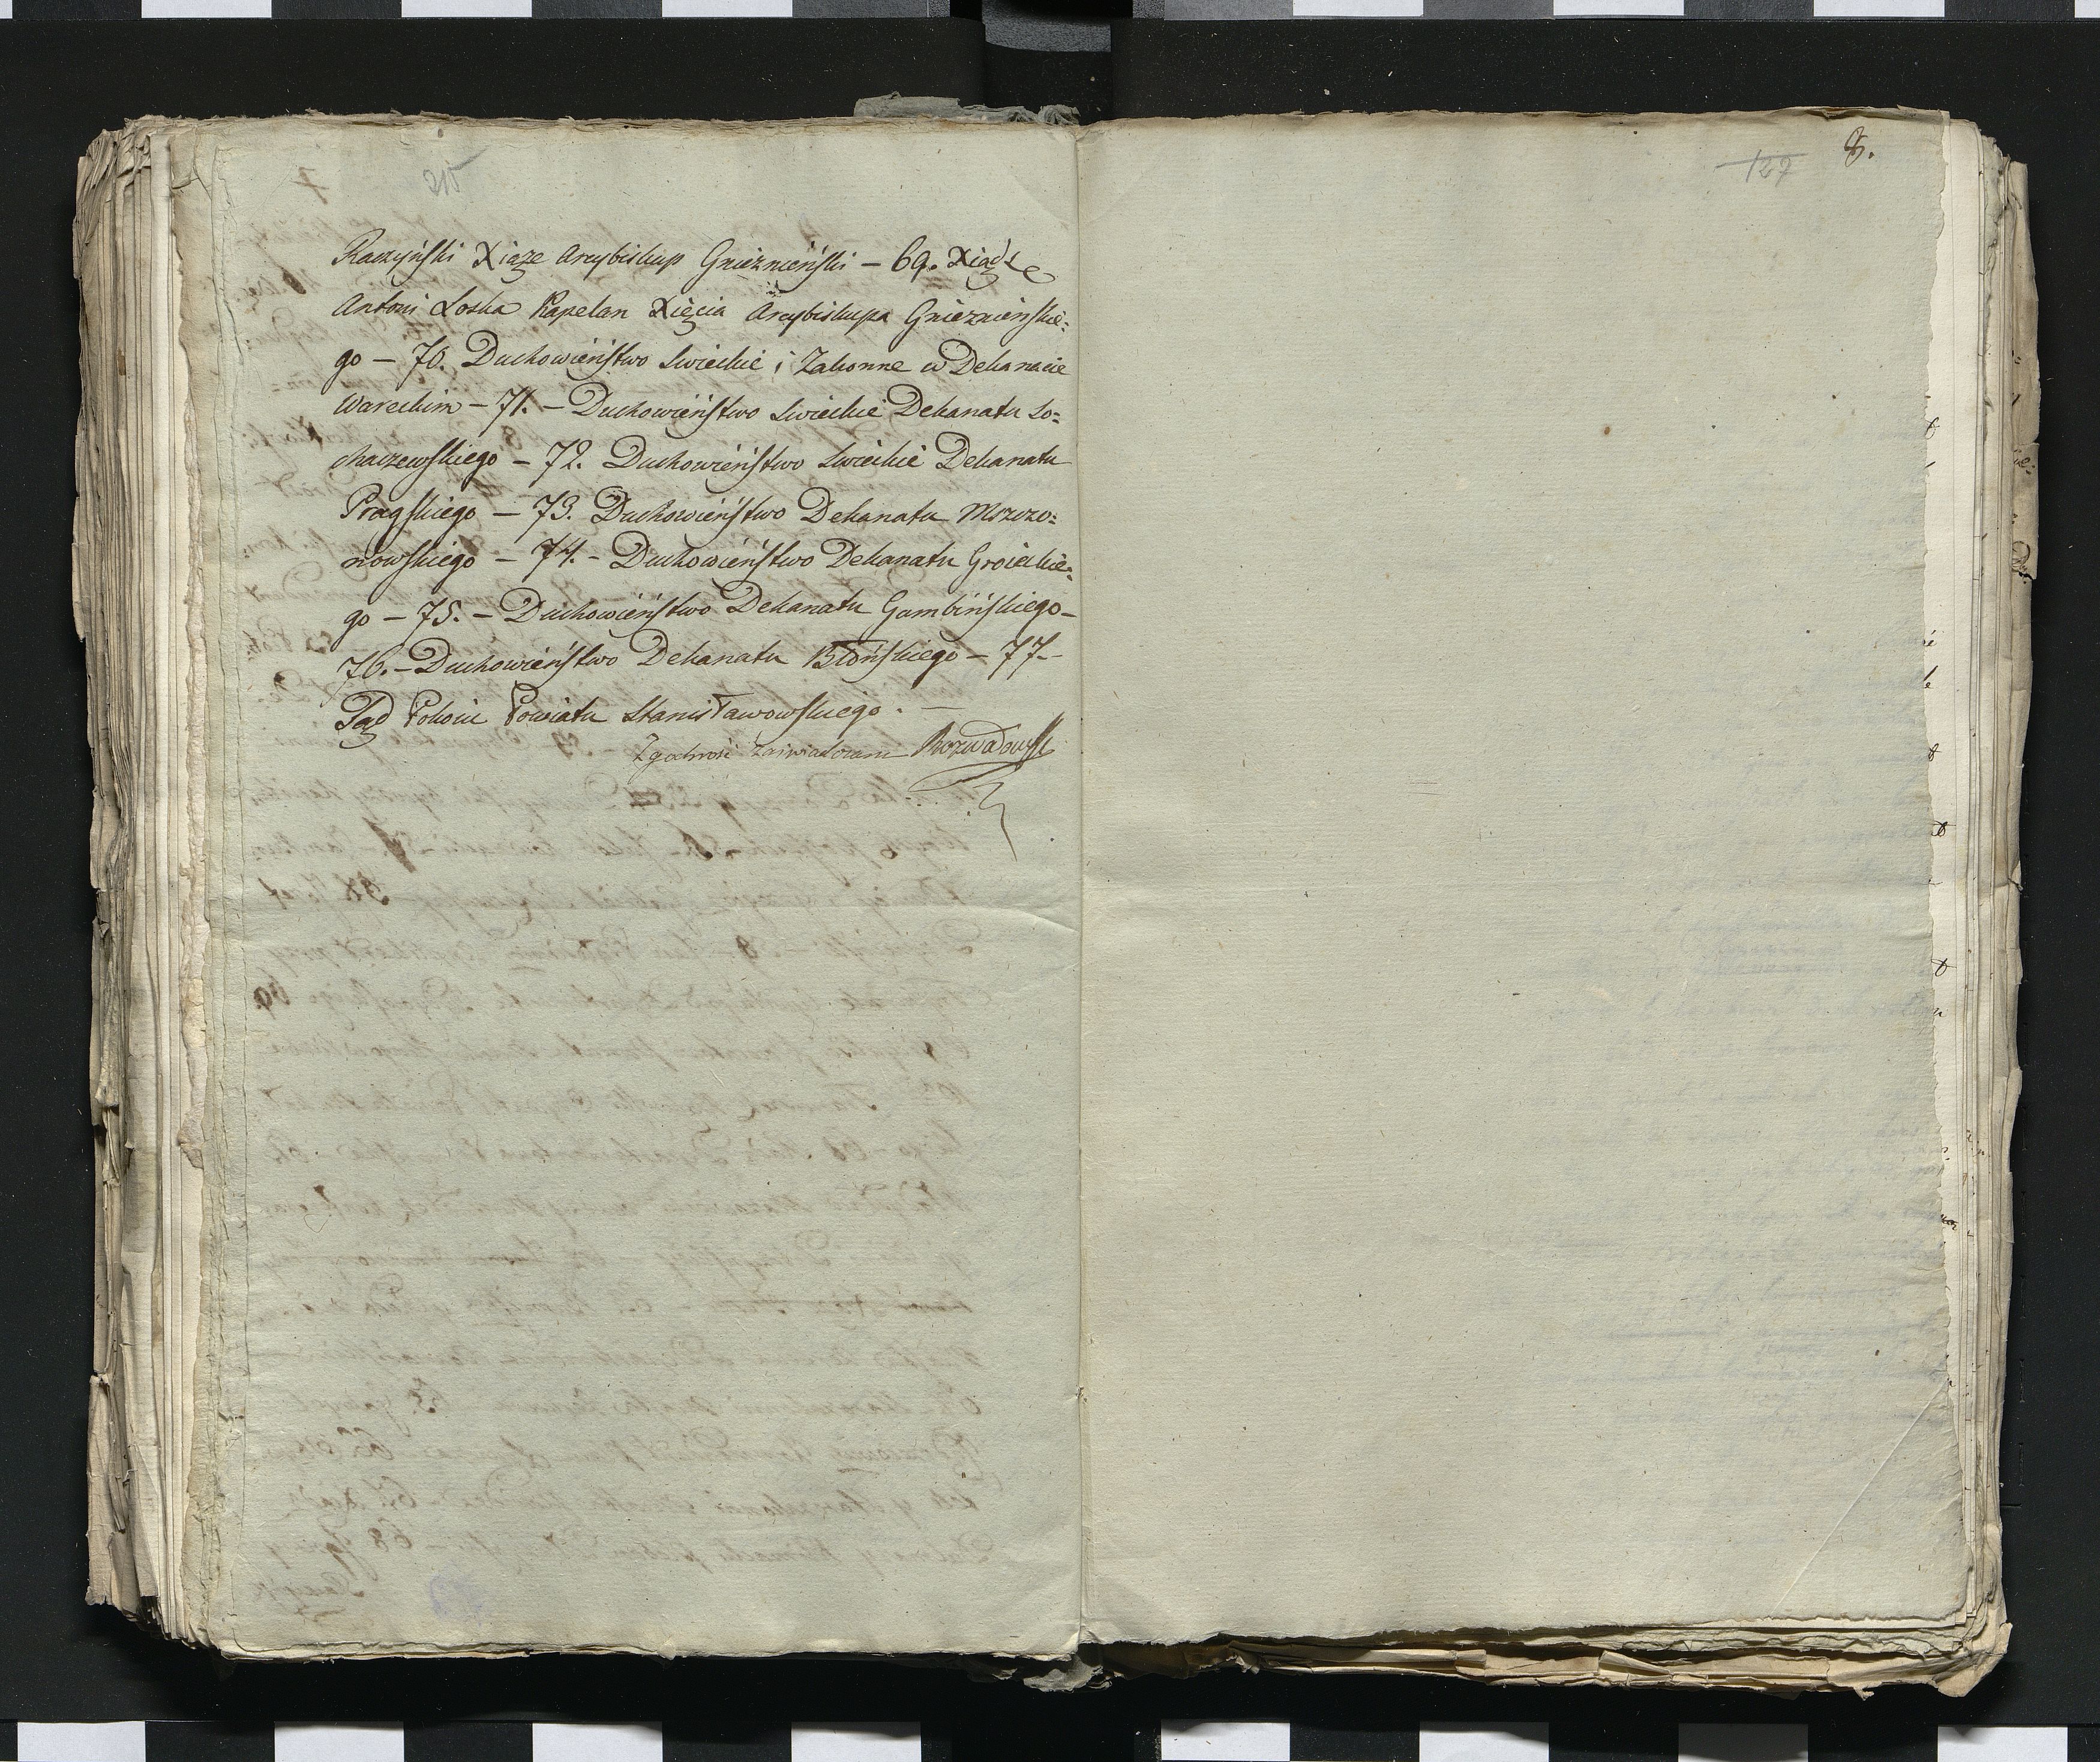 Raczyński Xiąże Arcybiskup Gnieźnieński – 69. Xiądz
Antoni Loska Kapelan Xięcia Arcybiskupa Gnieznieńskie:
go – 70. Duchowieństwo Swieckie i Zakonne w Dekanacie
Wareckim – 71. – Duchowieństwo Swieckie Dekanatu So:
chaczewskiego – 72. Duchowieństwo Swieckie Dekanatu
Pragskiego – 73. Duchowieństwo Dekanatu Mszczo:
nowskiego – 74. – Duchowieństwo Dekanatu Groieckie:
go – 75. – Duchowieństwo Dekanatu Gombińskiego –
76. – Duchowieństwo Dekanatu Błońskiego – 77 –
Sąd Pokoiu Powiatu Stanisławowskiego. –
Zgodność zaświadczam Rozwadowski
127 8.